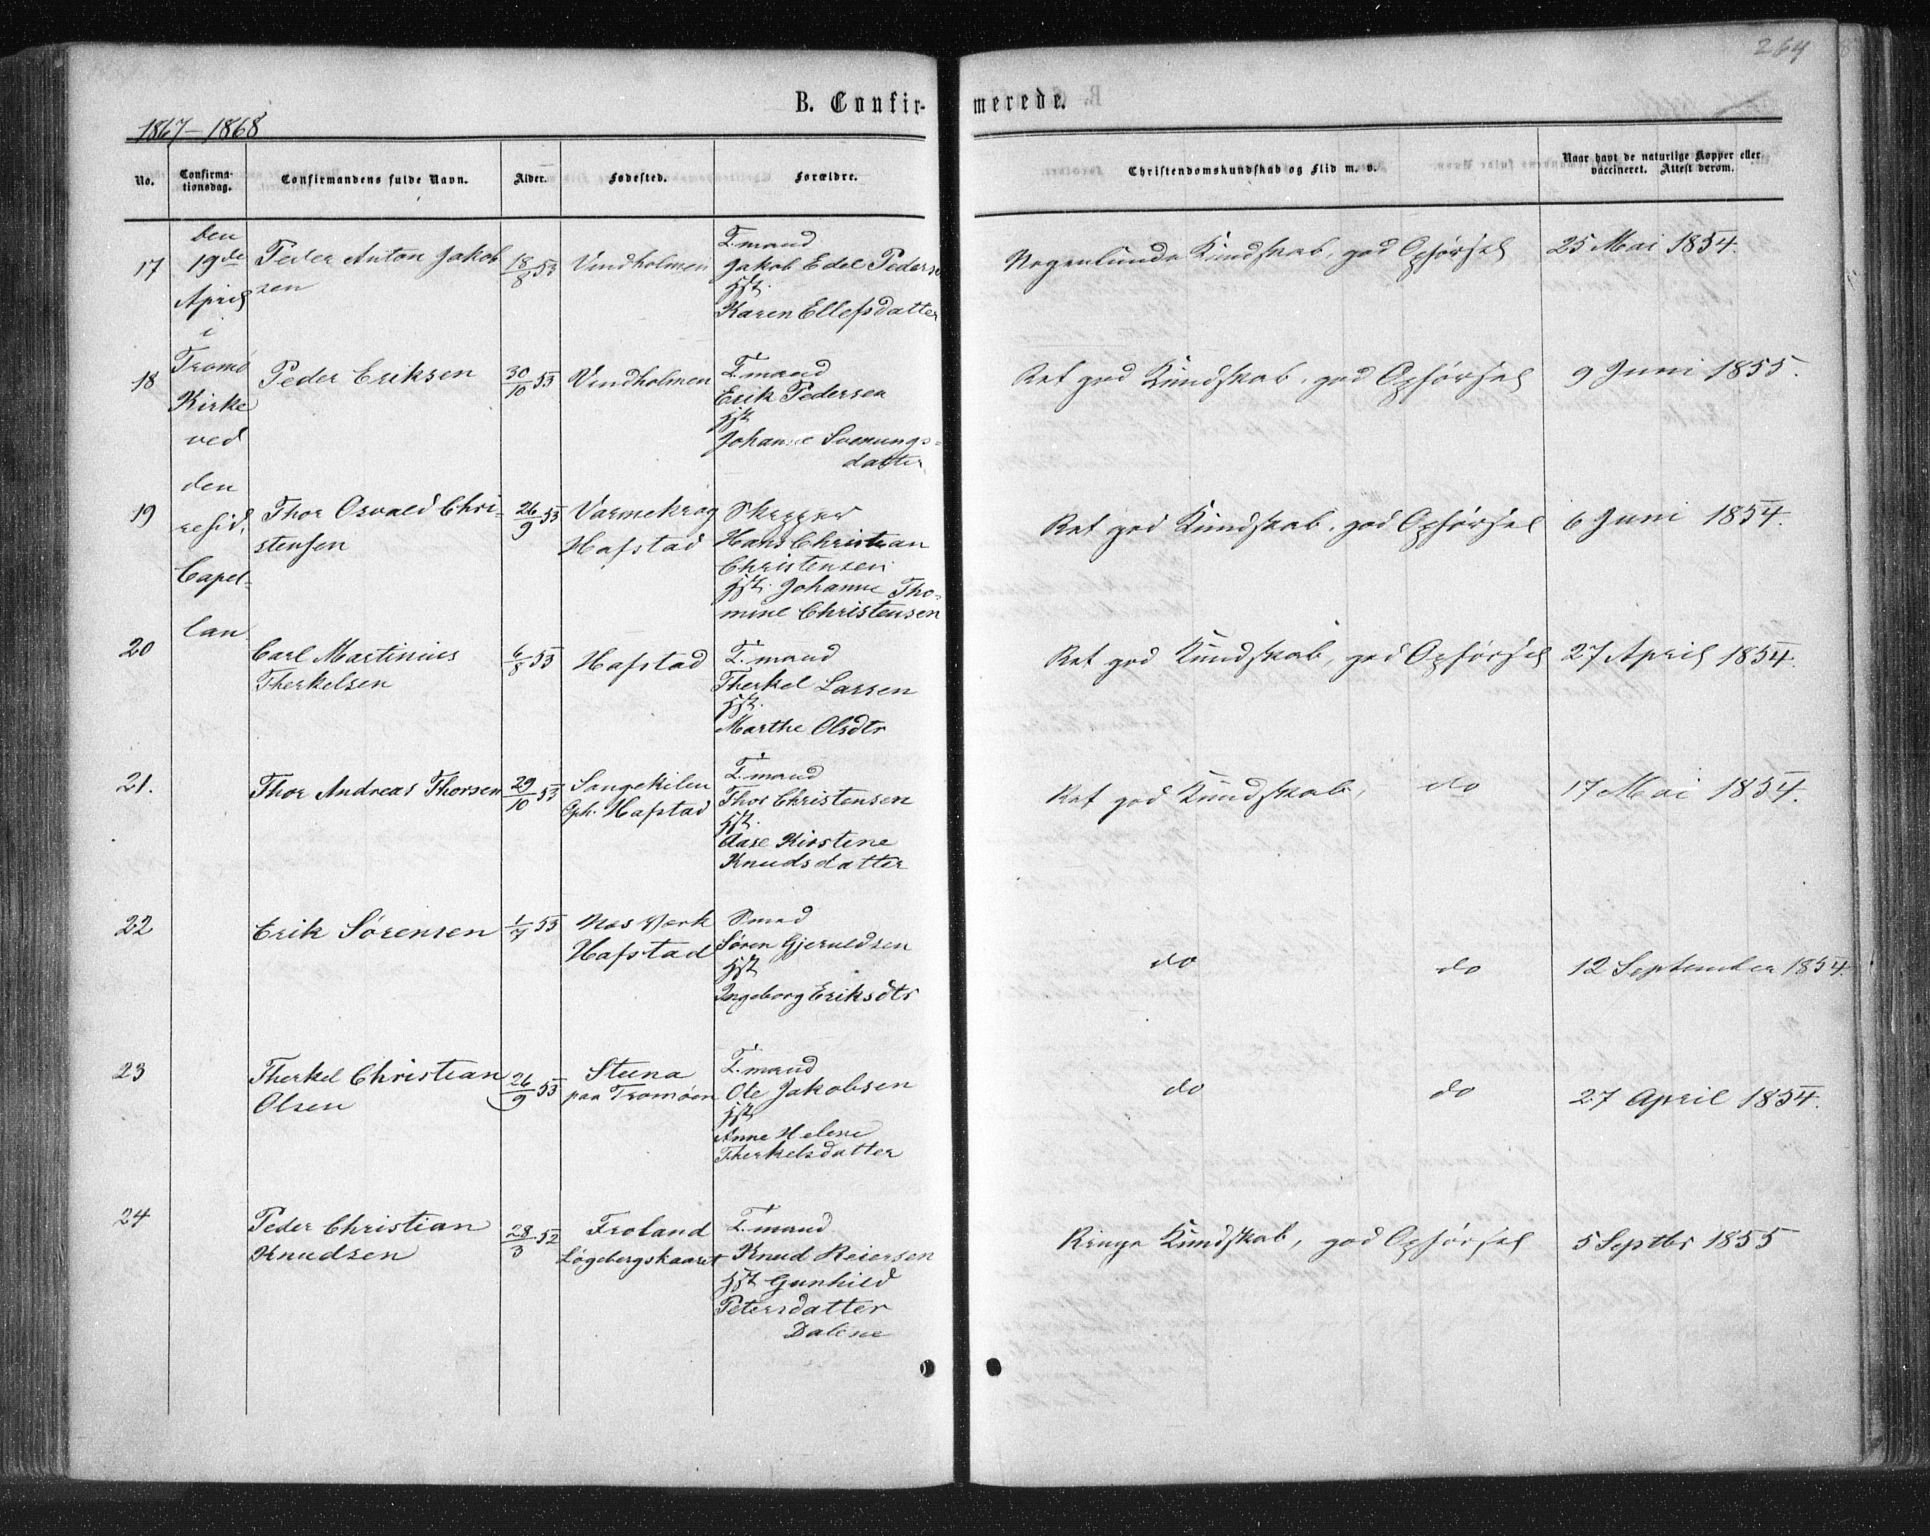 264
B. Confirmerede.
1867-1868
No.
Confirmationsdag.
Confirmandens fulde Navn.
Alder.
Fødested.
Forældre.
Christendomskundskab og Flid m. v.
Naar havt de naturlige Kopper eller vaccineret. Attest derom.
Den
19de
April
i
Tromø
Kirke
ved
den
resid.
Capel-
lan
17
Peder Anton Jakob
sen
18/8 53
Vindholmen
T.mand
Jakob Edel Pederse
Hst.
Karen Ellefsdatter
Nogenlunde Kundskab, god Opførsel
25 Mai 1854.
18
Peder Eriksen
30/10 53
Vindholmen
T.mand
Erik Pedersen
Hst.
Johanne Svenungs-
datter
Ret god Kundskab, god Opførsel
9 Juni 1855.
19
Thor Osvald Chri-
stensen
26/9 53
Varmekrog
Hafstad
Skipper
Hans Christian
Christensen
Hst. Johanne Tho-
mine Christensen
Ret god Kundskab, god Opførsel
6 Juni 1854.
20
Carl Martinius
Therkelsen
6/8 53
Hafstad
T.mand
Therkel Larsen
Hst.
Marthe Olsdtr
Ret god Kundskab, god Opførsel
27 April 1854.
21.
Thor Andreas Thorsen
29/10 53
Songekilen
Hafstad
T.mand
Thor Christensen
Hst.
Aase Kirstine
Knudsdatter
Ret god Kundskab, do
17 Mai 1854.
22
Erik Sørensen
1/7 53
Næs Verk
Hafstad
Smed
Søren Gjeruldsen
Hst
Ingeborg Eriksdtr
do do
12 September 1854.
23
Therkel Christian
Olsen
26/9 53
Steena
paa Tromøen
T.mand
Ole Jakobsen
Hst
Anne Helene
Therkelsdatter
do do
27 April 1854.
24
Peder Christian
Knudsen
28/3 52
Froland
Løgebergskaaret
T.mand
Knud Reiersen
Hst Gunhild
Petersdatter
Dalene
Ringe Kundskab, god Opførsel
5 Septbr 1855